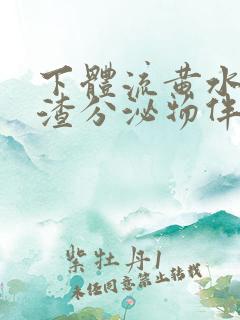 下體流黄水
渣分泌物伴
紫牡丹1
未经同意禁止转载